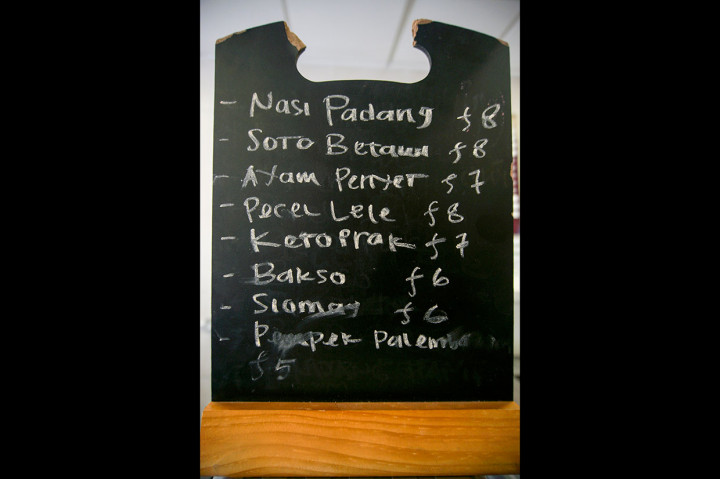 - Nasi Padang £8
- Soto Betawi £8
- Ayam Penyet £7
- Pecel Lele £8
- Ketoprak £7
- Bakso £6
- Siomay £6
- Pempek Palemba
£5